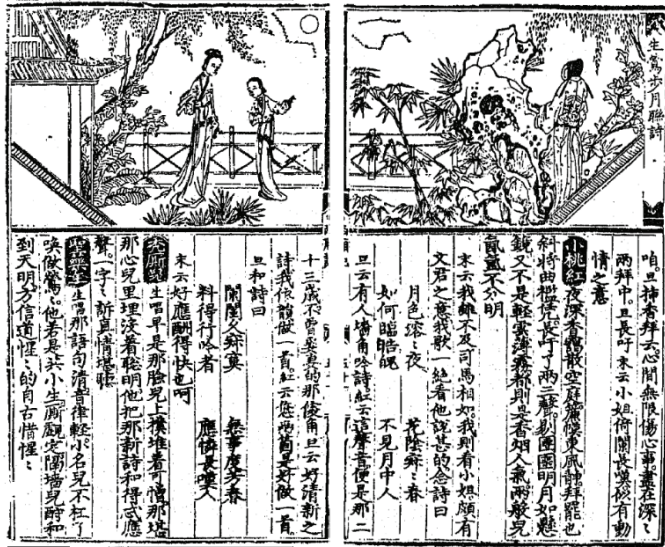 生鶯步月聯詩
咱旦挿香拜云心間無限傷心事盡在深〻
兩拜中旦長吁末云小姐倚闌長嘆似有動
情之意
小桃紅夜深香靄散空庭簾幙東風静拜罷也
斜將曲欄凭長吁了兩三聲剔團圞明月如懸
鏡又不是輕雲薄霧都則是香烟人氣兩般兒
氤氳不分明
末云我雖不及司馬相如我則看小姐頗有
文君之意我歌一絕看他說甚的念詩曰
月色溶〻夜 花陰寂〻春
如何臨皓魄 不見月中人
旦云有人墻角吟詩紅云這聲音便是那二
十三歲不曾娶妻的那傻角旦云好清新之
詩我依韻做一首紅云您兩箇是好做一首
旦和詩曰
蘭閨久寂寞 無事度芳春
料得行吟者 應憐長嘆人
末云好應酬得快也呵
禿厮兒生唱早是那臉兒上撲堆着可憎那堪
那心兒里埋没着聰明他把那新詩和得忒應
聲一字〻訴真情堪聽
聖藥王生唱那語句清音律輕小名兒不枉了
喚做鶯〻他若是共小生厮覷定隔墻兒酧和
到天明方信道惺〻的自古惜惺〻